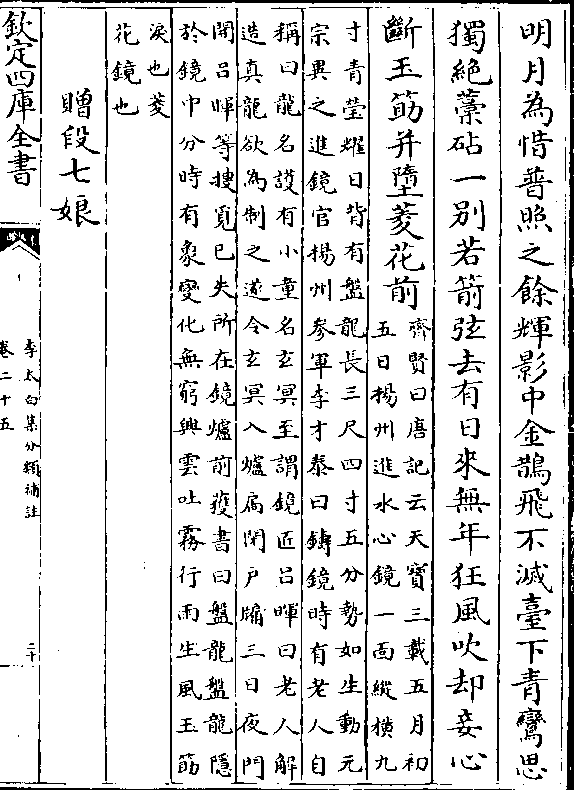 明月為惜普照之餘輝影中金鵲飛不滅臺下青鸞思
獨絕藁砧一別若箭弦去有日來無年狂風吹却妾心
斷玉筯并墮菱花前
齊賢曰唐記云天寶三載五月初
五日揚州進水心鏡一面縱橫九
寸青瑩耀日背有盤龍長三尺四寸五分勢如生動元
宗異之進鏡官楊州參軍李才泰曰鑄鏡時有老人自
稱曰龍名護有小童名玄冥至謂鏡匠呂暉曰老人解
造真龍欲為制之遂令玄冥入爐扃閉戶牖三日夜門
開呂暉等搜覓已失所在鏡爐前獲書曰盤龍盤龍隱
於鏡中分時有象變化無窮興雲吐霧行雨生風玉筯
淚也菱
花鏡也
贈段七娘
欽定四庫全書
李太白集分類補註
卷二十五
二十